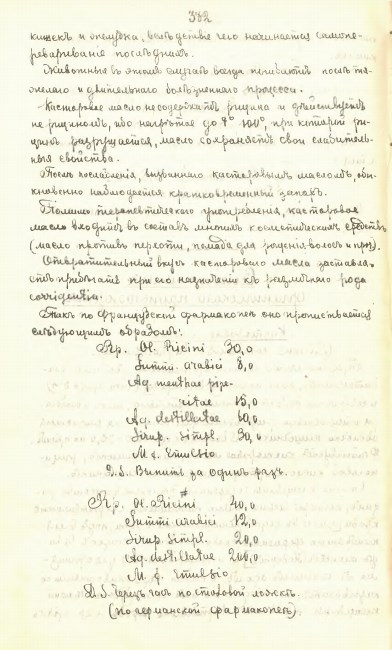 332
кишекъ и желудка, вслѣдствіе чего начинается самопе-
ревариваніе послѣднихъ.
Животныя въ этомъ случаѣ всегда погибаютъ послѣ тя-
желаго и длительнаго болѣзненнаго процесса.
Касторовое масло не содержитъ рицина и дѣйствуетъ
не рициномъ, ибо нагрѣтое до t° 100°, при которой ри-
цинъ разрушается, масло сохраняетъ свои слабитель-
ныя свойства.
Послѣ послабленія, вызваннаго касторовымъ масломъ, обы-
кновенно наблюдается кратковременный запоръ.
Помимо терапевтическаго употребленія, касторовое
масло входитъ въ составъ многихъ косметическихъ средствъ
(масло противъ перхоти, помада для рощенія волосъ и проч).
Отвратительный вкусъ касторового масла заставля-
етъ прибѣгать при его назначеніи къ различнаго рода
corrigentia.
Такъ по Французской фармакопеѣ оно прописывается
слѣдующимъ образомъ:
Rp. Ol. Ricini 30,0
Gummi arabici 8,0
Aq. menthae pipe-
ritae 15,0
Aq. destillatae 60,0
Sirup. Simpl. 30,0
M. f. Emulsio
D. S. Выпить за одинъ разъ.
Rp. Ol. Ricini 40,0
Gummi arabici 12,0
Sirup. Simpl. 20,0
Aq. destillatae 200,0
M. f. Emulsio
D. S. Черезъ часъ по столовой ложкѣ.
(по германской фармакопеѣ).